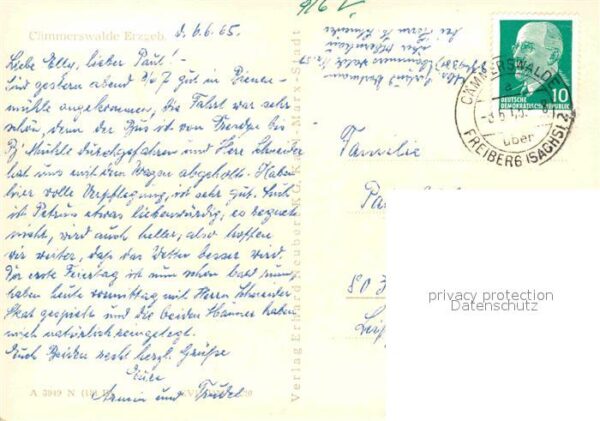 Cämmerswalde Erzgeb.
d. 6.6.65.
Liebe Elly, lieber Paul! -
Sind gestern abend 3/4 7 gut in Bienen-
mühle angekommen, die Fahrt war sehr
schön, denn der Bus ist von Dresden bis
B. Mühle durchgefahren und Herr Schneider
hat uns mit dem Wagen abgeholt. Haben
hier volle Verpflegung, ist sehr gut. Seit
ist Petrus etwas liebenswürdig, es regnete
nicht, wird auch heller, also hoffen
wir weiter, daß das Wetter besser wird.
Der erste Feiertag ist nun schon bald rum,
haben heute vormittag mit Herrn Schneider
Skat gespielt und die beiden Männer haben
mich natürlich reingelegt.
Euch Beiden recht herzl. Grüße
Eure
Armin und Trudel
A 3949 N
Verlag Erhard Neubert KG, Karl-Marx-Stadt
über
bei Herrn
10
DEUTSCHE
DEMOKRATISCHE REPUBLIK
CÄMMERSWALDE
a
über
FREIBERG (SACHS) 2
Familie
Pa
80
privacy protection
Datenschutz